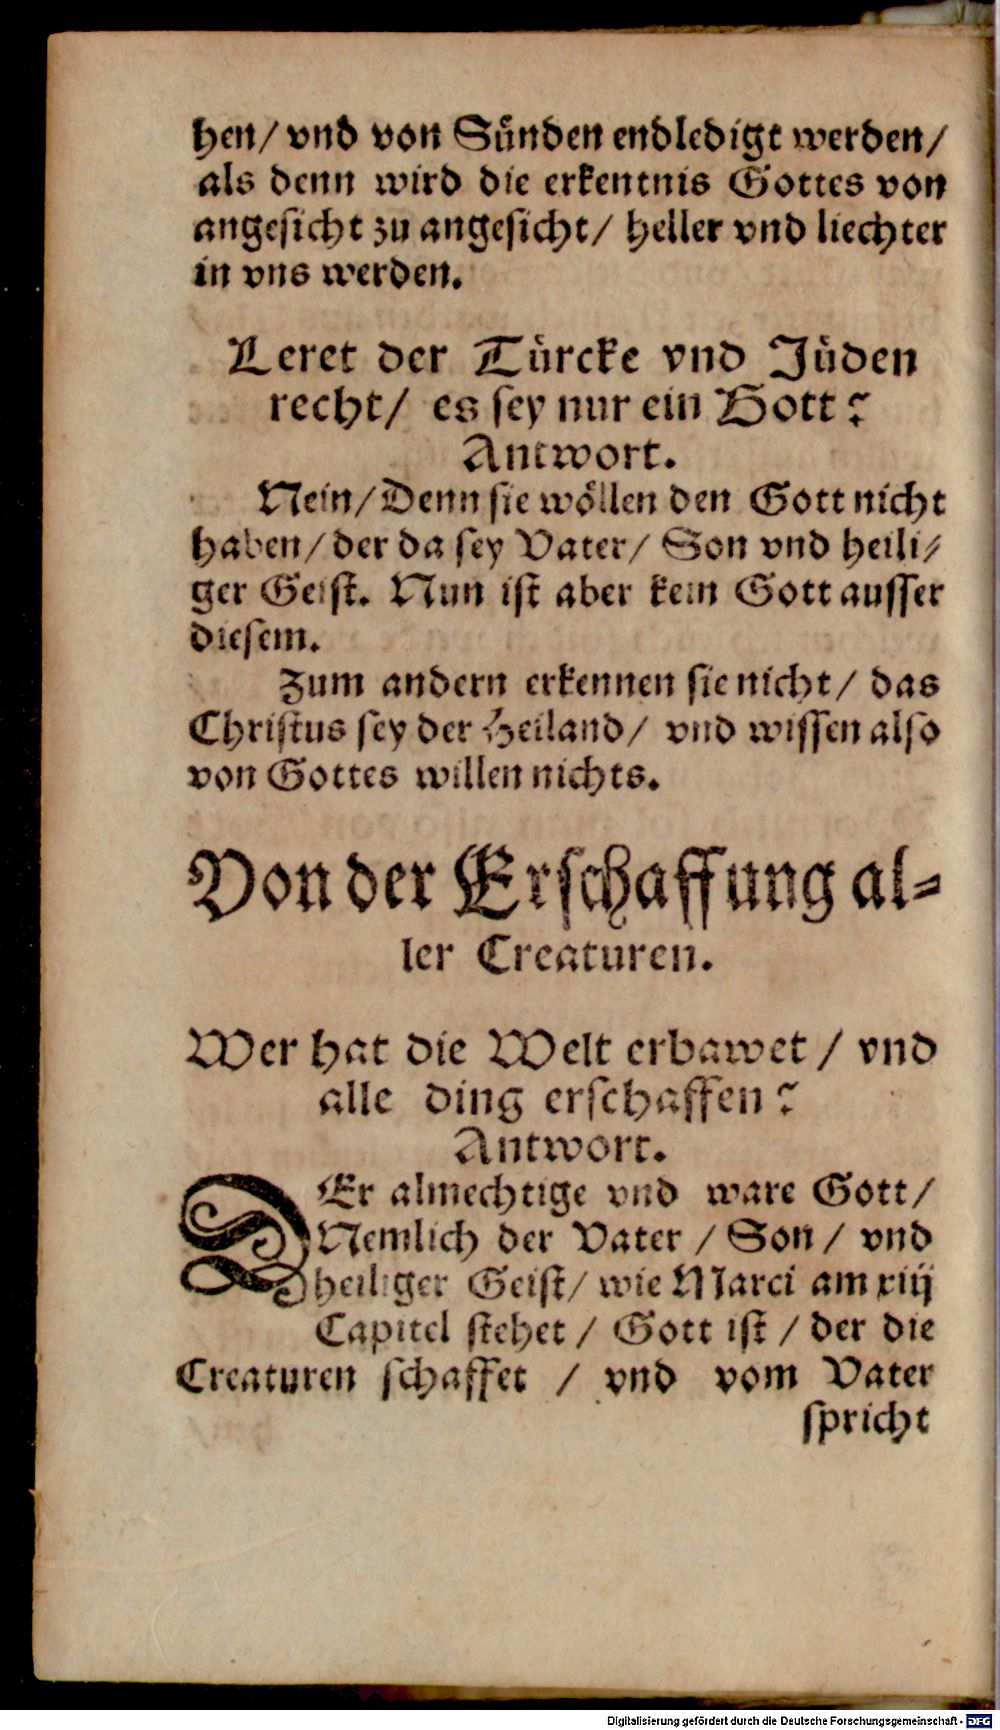 hen/ vnd von Sünden endledigt werden/
als denn wird die erkentnis Gottes von
angesicht zu angesicht/ heller vnd liechter
in vns werden.
Leret der Türcke vnd Jüden
recht/ es sey nur ein Gott?
Antwort.
Nein/ Denn sie wöllen den Gott nicht
haben/ der da sey Vater/ Son vnd heili-
ger Geist. Nun ist aber kein Gott ausser
diesem.
Zum andern erkennen sie nicht/ das
Christus sey der Heiland/ vnd wissen also
von Gottes willen nichts.
Von der Erschaffung al-
ler Creaturen.
Wer hat die Welt erbawet/ vnd
alle ding erschaffen?
Antwort.
DEr almechtige vnd ware Gott/
Nemlich der Vater/ Son/ vnd
heiliger Geist/ wie Marci am xiij
Capitel stehet/ Gott ist/ der die
Creaturen schaffet/ vnd vom Vater
spricht
Digitalisierung gefördert durch die Deutsche Forschungsgemeinschaft - DFG